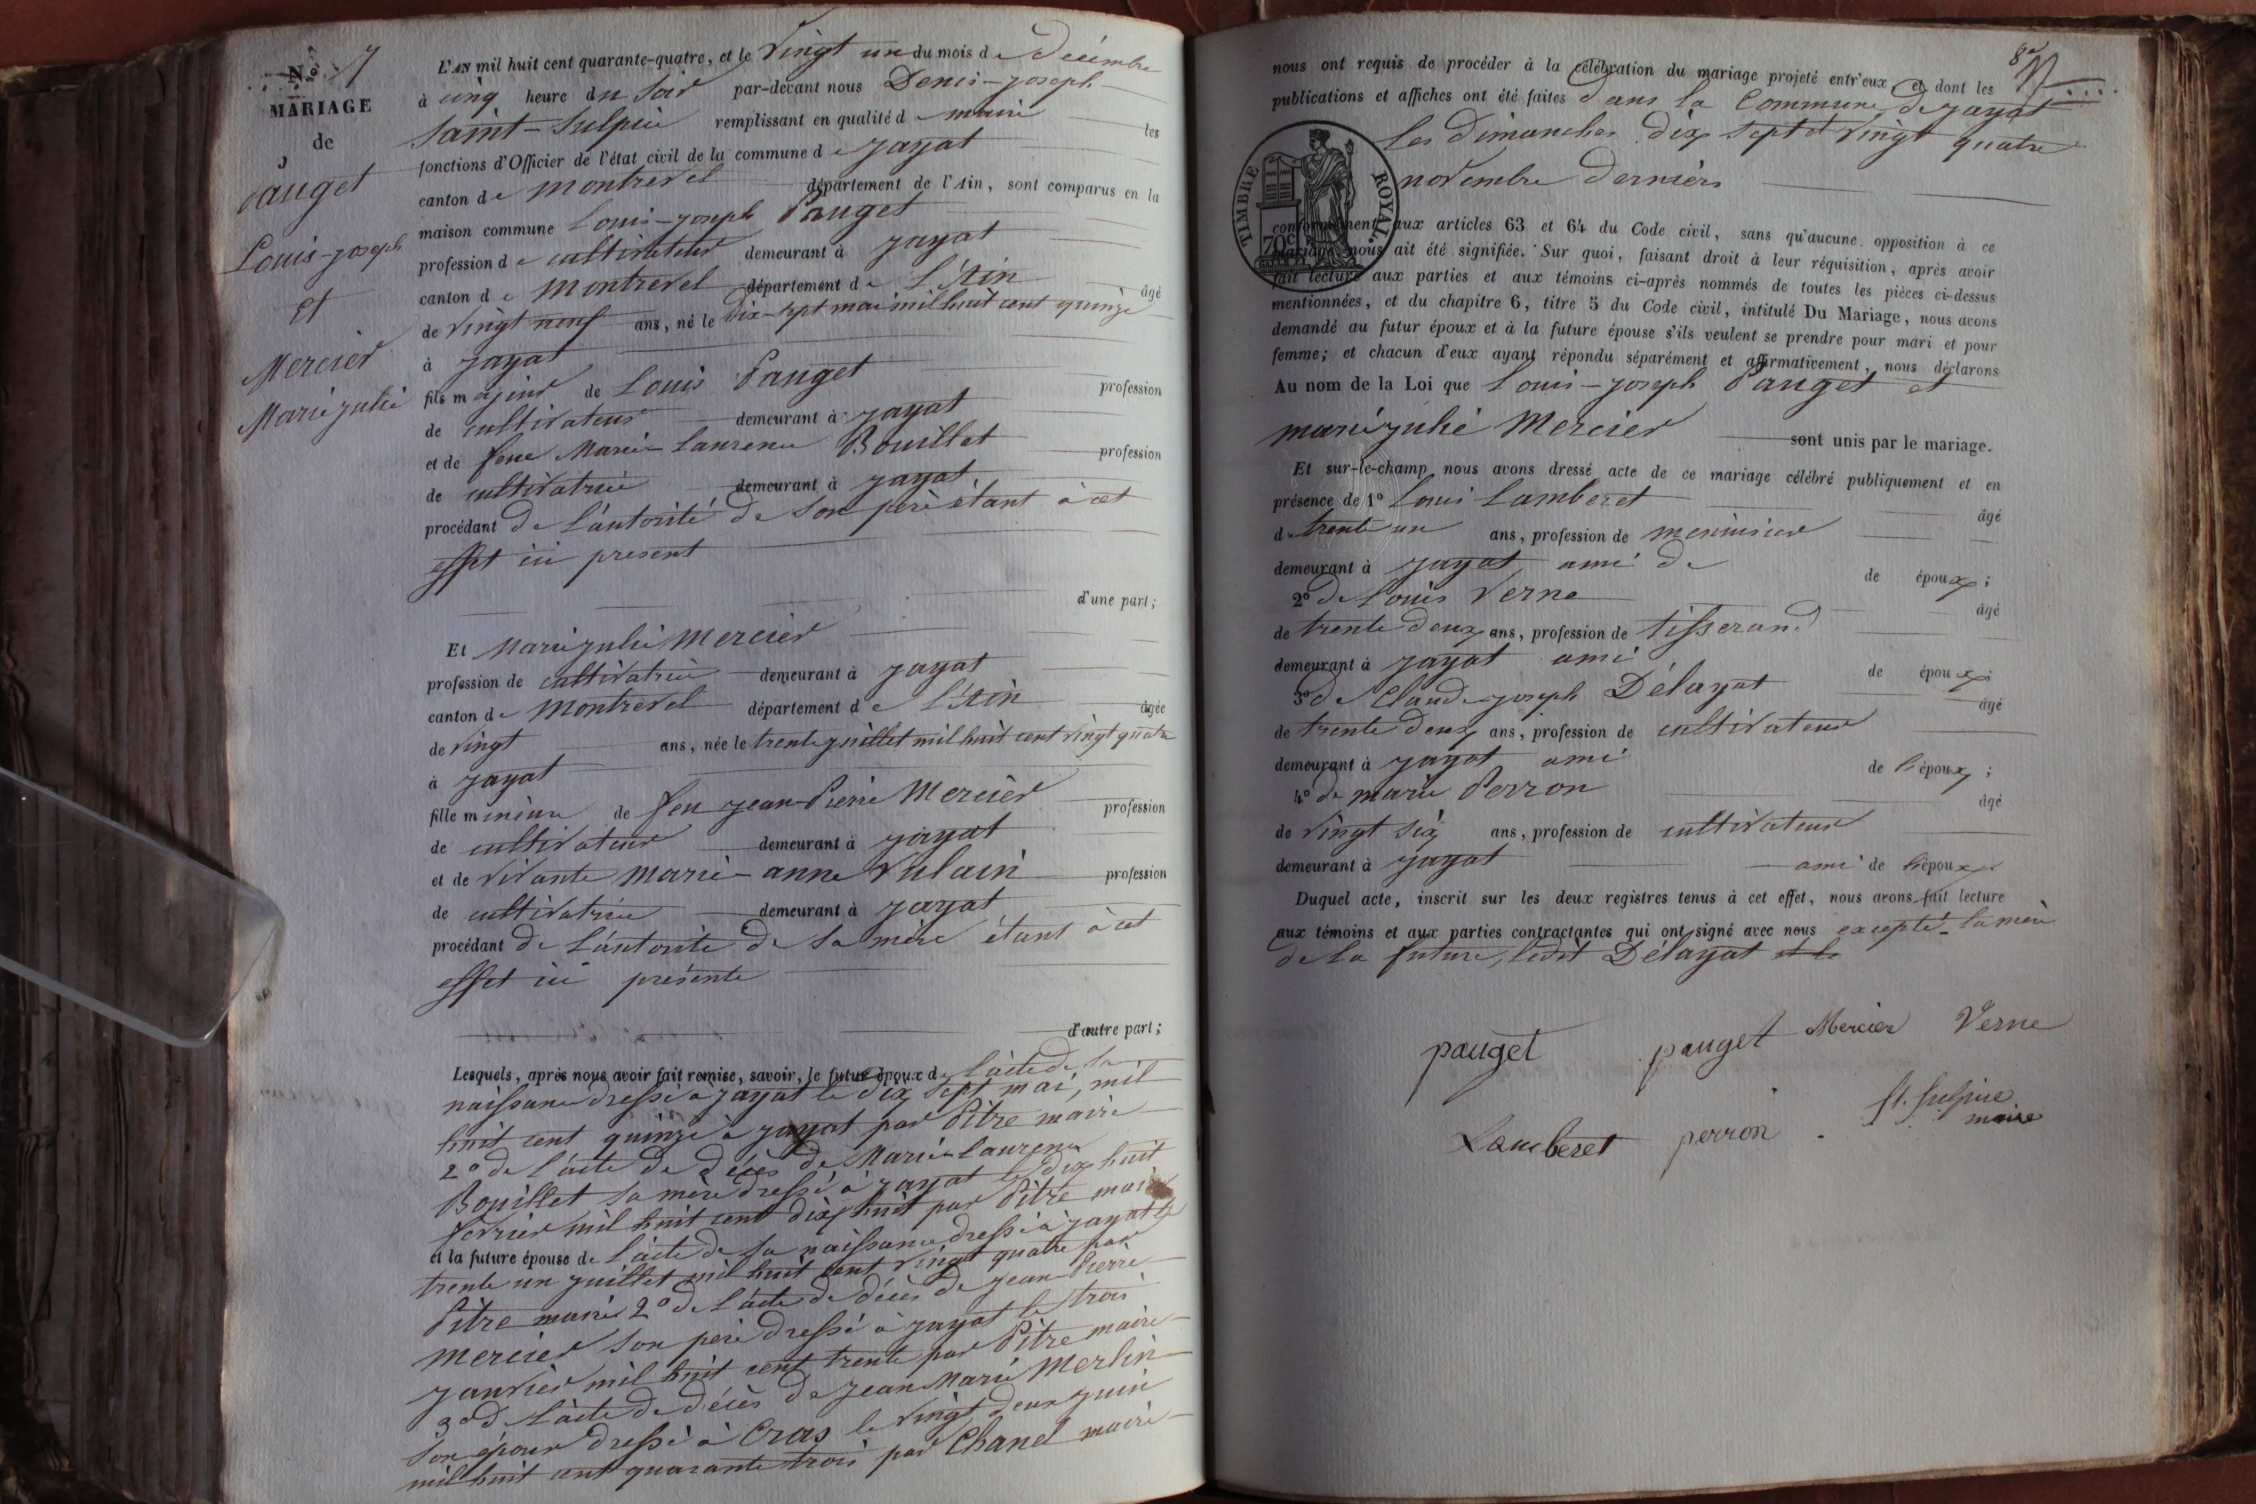 N.º 7
MARIAGE
de
Pauget
Louis-joseph
et
Mercier
Marie julie
L'AN mil huit cent quarante-quatre, et le vingt un du mois de décembre
à cinq heure du soir par-devant nous Denis-joseph
Saint-Sulpice remplissant en qualité de maire les
fonctions d'Officier de l'état civil de la commune de jayat
canton de montrevel département de l'Ain, sont comparus en la
maison commune Louis-joseph Pauget
profession de cultivateur demeurant à jayat
canton de montrevel département de L'Ain âgé
de vingt neuf ans, né le dix-sept mai mil huit cent quinze
à jayat
fils majeur de Louis Pauget profession
de cultivateur demeurant à jayat
et de feue Marie-Laurence Bouillet profession
de cultivatrice demeurant à jayat
procédant de l'autorité de son père étant à cet
effet ici present
d'une part;
Et Marie julie Mercier
profession de cultivatrice demeurant à jayat
canton de montrevel département de L'Ain âgée
de vingt ans, née le trente juillet mil huit cent vingt quatre
à jayat
fille mineure de feu jean-Pierre Mercier profession
de cultivateur demeurant à jayat
et de vivante marie-anne Vulain profession
de cultivatrice demeurant à jayat
procédant de l'autorité de sa mère étant à cet
effet ici présente
d'autre part;
Lesquels, après nous avoir fait remise, savoir, le futur époux de L'acte de sa
naissance dressé à jayat le dix sept mai, mil
huit cent quinze à jayat par Pitre maire
2º de l'acte de décès de Marie Laurence
Bouillet sa mère dressé à jayat le dix huit
fevrier mil huit cent dix huit par Pitre maire
et la future épouse de l'acte de sa naissance dressé à jayat le
trente un juillet mil huit cent vingt quatre par
Pitre maire 2º de l'acte de décès de jean Pierre
mercier son père dressé à jayat le trois
janvier mil huit cent trente par Pitre maire
3º de l'acte de décès de jean Marie Merlin
son époux dressé à Cras le vingt deux juin
mil huit cent quarante trois par Chanel maire
8e
nous ont requis de procéder à la célébration du mariage projeté entr'eux et dont les
publications et affiches ont été faites dans la Commune de jayat
les Dimanches dix sept et vingt quatre
novembre derniers
TIMBRE ROYAL
70c
conformément aux articles 63 et 64 du Code civil, sans qu'aucune opposition à ce
mariage nous ait été signifiée. Sur quoi, faisant droit à leur réquisition, après avoir
fait lecture aux parties et aux témoins ci-après nommés de toutes les pièces ci-dessus
mentionnées, et du chapitre 6, titre 5 du Code civil, intitulé Du Mariage, nous avons
demandé au futur époux et à la future épouse s'ils veulent se prendre pour mari et pour
femme; et chacun d'eux ayant répondu séparément et affirmativement, nous déclarons
Au nom de la Loi que Louis-joseph Pauget et
marie julie Mercier sont unis par le mariage.
Et sur-le-champ nous avons dressé acte de ce mariage célébré publiquement et en
présence de 1º Louis Lamberet âgé
de trente un ans, profession de menuisier
demeurant à jayat ami de de époux;
2º de Louis Verne âgé
de trente deux ans, profession de tisserand
demeurant à jayat ami de époux;
3º de Claude-joseph Délayat âgé
de trente deux ans, profession de cultivateur
demeurant à jayat ami de l'époux;
4º de marie Perron âgé
de vingt six ans, profession de cultivateur
demeurant à jayat ami de l'époux
Duquel acte, inscrit sur les deux registres tenus à cet effet, nous avons fait lecture
aux témoins et aux parties contractantes qui ont signé avec nous excepté la mère
de la future, ledit Délayat et le
pauget pauget Mercier Verne
Lamberet perron St. Sulpice
maire